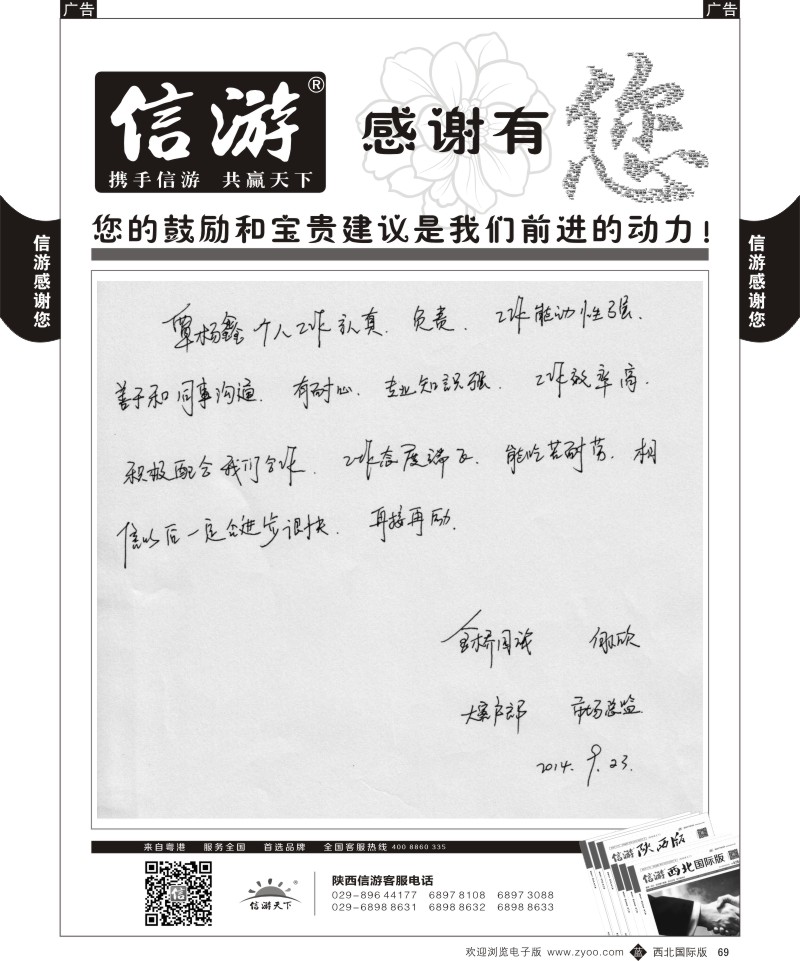 广告
广告
信游®
携手信游 共赢天下
感谢有您
您的鼓励和宝贵建议是我们前进的动力!
信游感谢您
信游感谢您
覃杨鑫个人工作认真、负责、工作能动性强、
善于和同事沟通、有耐心、专业知识强、工作效率高、
积极配合我们合作、工作态度端正、能吃苦耐劳、相
信以后一定会进步很快、再接再励、
金桥国旅
大客户部 市场总监
2014. 9. 23.
来自粤港 服务全国 首选品牌 全国客服热线 400 8860 335
信游
信游天下
陕西信游客服电话
029-896 44177 6897 8108 6897 3088
029-6898 8631 6898 8632 6898 8633
信游 陕西版
信游 西北国际版
欢迎浏览电子版 www.zyoo.com 蓝 西北国际版 69